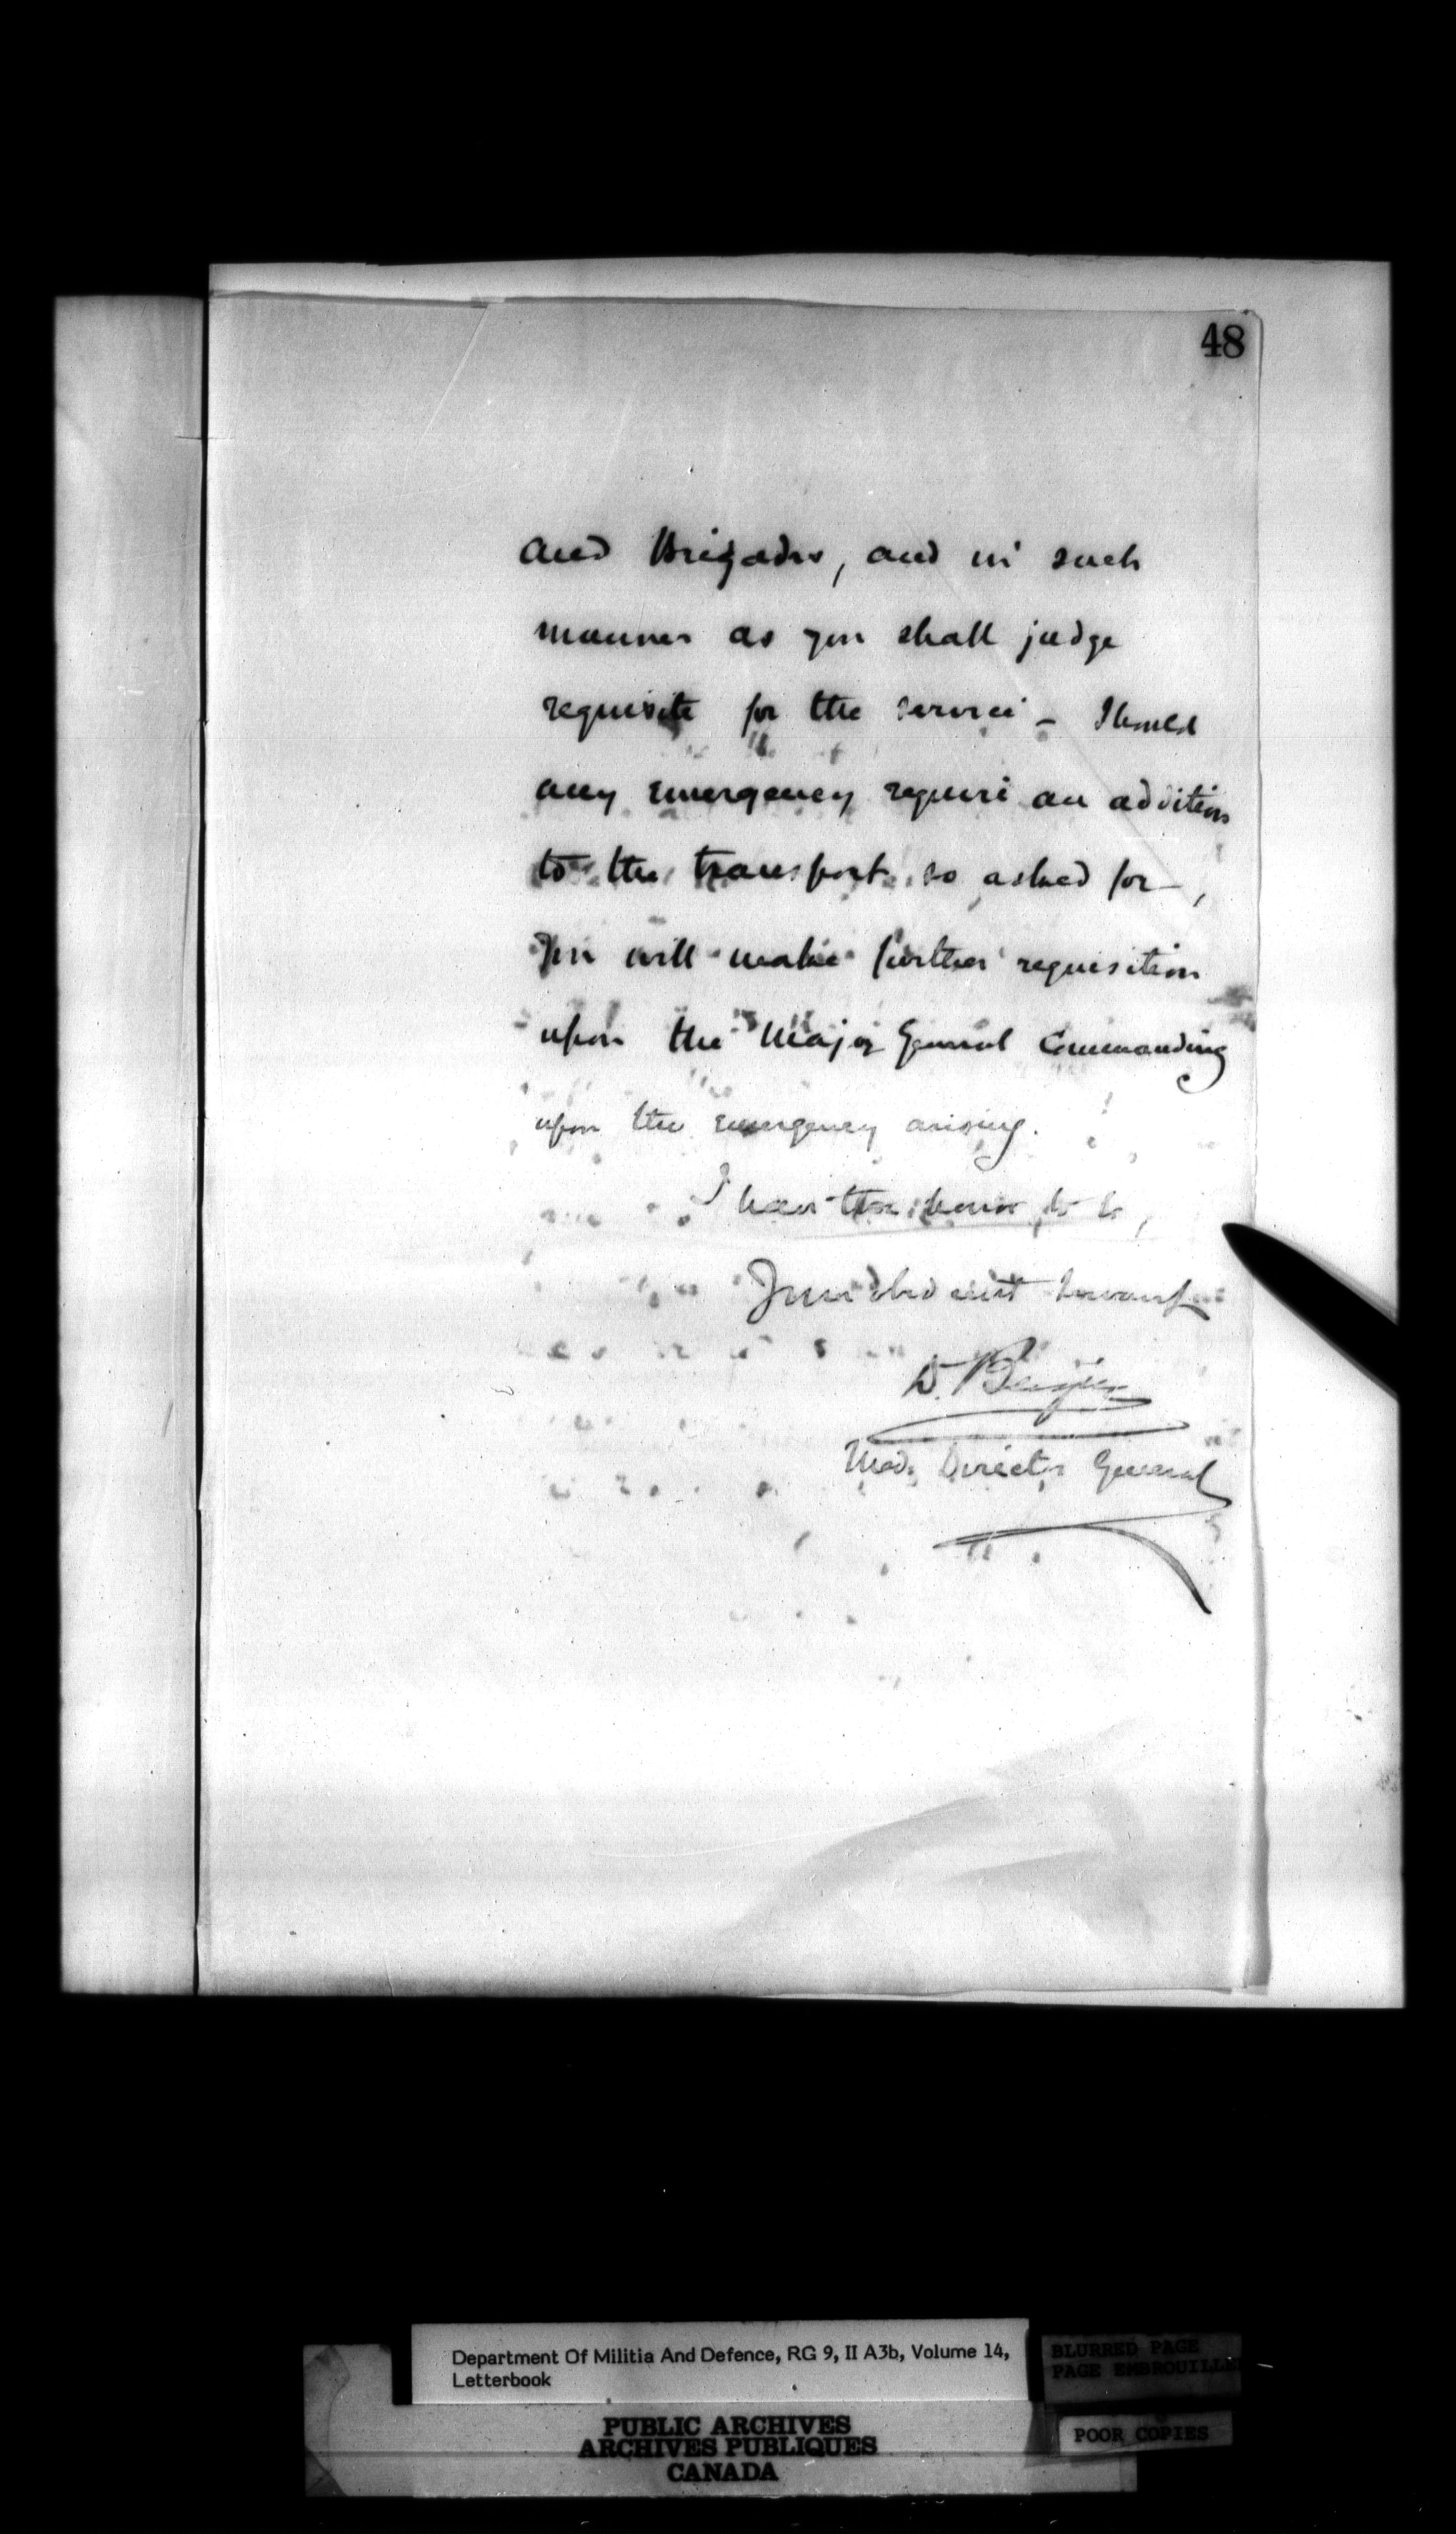 48
and Brigades, and in such
manner as you shall judge
requisite for the service - Should
any emergency require an addition
to the transport so asked for -,
You will make further requisition
upon the Major General Commanding
upon the emergency arising.
I have the honor to be,
Your obedient Servant
D. Bergin
Med. Director General
Department Of Militia And Defence, RG 9, II A3b, Volume 14,
Letterbook
BLURRED PAGE
PAGE EMBROUILLEE
POOR COPIES
PUBLIC ARCHIVES
ARCHIVES PUBLIQUES
CANADA